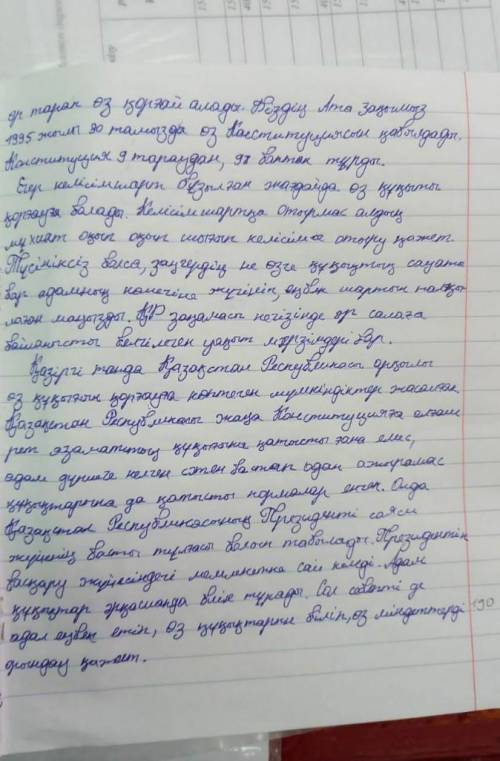 әр тарап өз қорғай алады. Біздің Ата заңымыз
1995 жылы 30 тамызда өз Конституциясын қабылдады.
Конституция 9 тараудан, 98 баптан тұрды.
Егер келісімшарт бұзылған жағдайда өз құқығын
қорғауға болады. Келісімшартқа отырмас алдың
мұқият оқып оқып шығып келісімге отыру қажет.
Түсініксіз болса, заңгердің не өзге құқықтық сауаты
бар адамның көмегіне жүгініп, еңбек шартын талқы
лаған маңызды. ҚР заңнамасы негізінде әр салаға
байланысты белгіленген уақыт мерзімдері бар.
Қазіргі таңда Қазақстан Республикасы арқылы
өз құқығын қорғауға көптеген мүмкіндіктер жасалған.
Қазақстан Республикасы жаңа Конституцияға алғаш
рет азаматтың құқығына қатысты ғана емес,
адам дүниеге келген сәттен бастап одан ажырамас
құқықтарына да қатысты нормалар енген. Онда
Қазақстан Республикасының Президенті саяси
жүйенің басты тұлғасы болып табылады. Президенттік
басқару жүйесіндегі мемлекетке сай келеді. Адам
құқықтар әрқашанда биік тұрады. Сол себепті де
адал еңбек етіп, өз құқықтарын біліп, өз міндеттерді
орындау қажет.
190